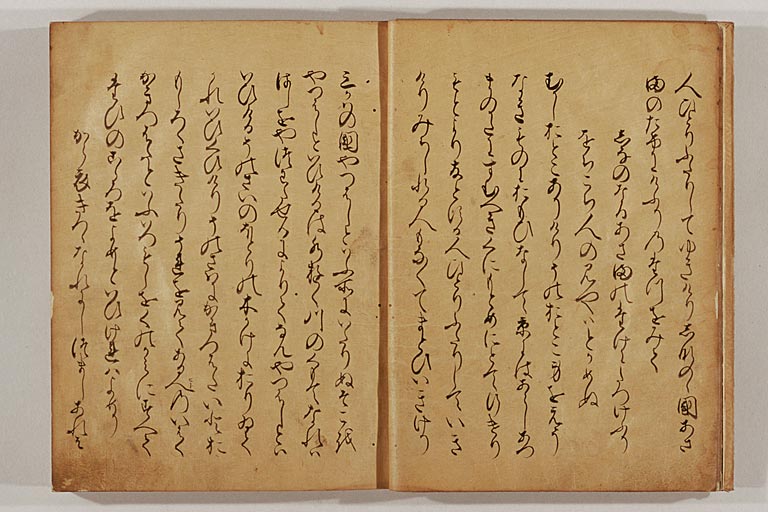 人ひとりふたりしてゆきけりしなのゝ國あさ
まのたけにけふりのたつをみて
しなのなるあさまのたけにたつけふり
をちこち人の見やはとかめぬ
むかしおとこありけりそのおとこ身をえう
なきものにおもひなして京にはあらしあつ
まのかたにすむへきくにもとめにとてゆきけり
もとよりともとする人ひとりふたりしていき
けりみちしれる人もなくてまとひいきけり
三かはの國やつはしといふ所にいたりぬそこを
やつはしといひけるは水ゆく川のくもてなれは
はしをやつわたせるによりてなんやつはしとい
ひけるそのさはのほとりの木のかけにおりゐて
かれいひくひけりそのさはにかきつはたいとお
もしろくさきたりそれを見てある人のいはく
かきつはたといふいつもしをくのかみにすへて
たひのこゝろをよめといひけれはよめり
から衣きつゝなれにしつましあれは